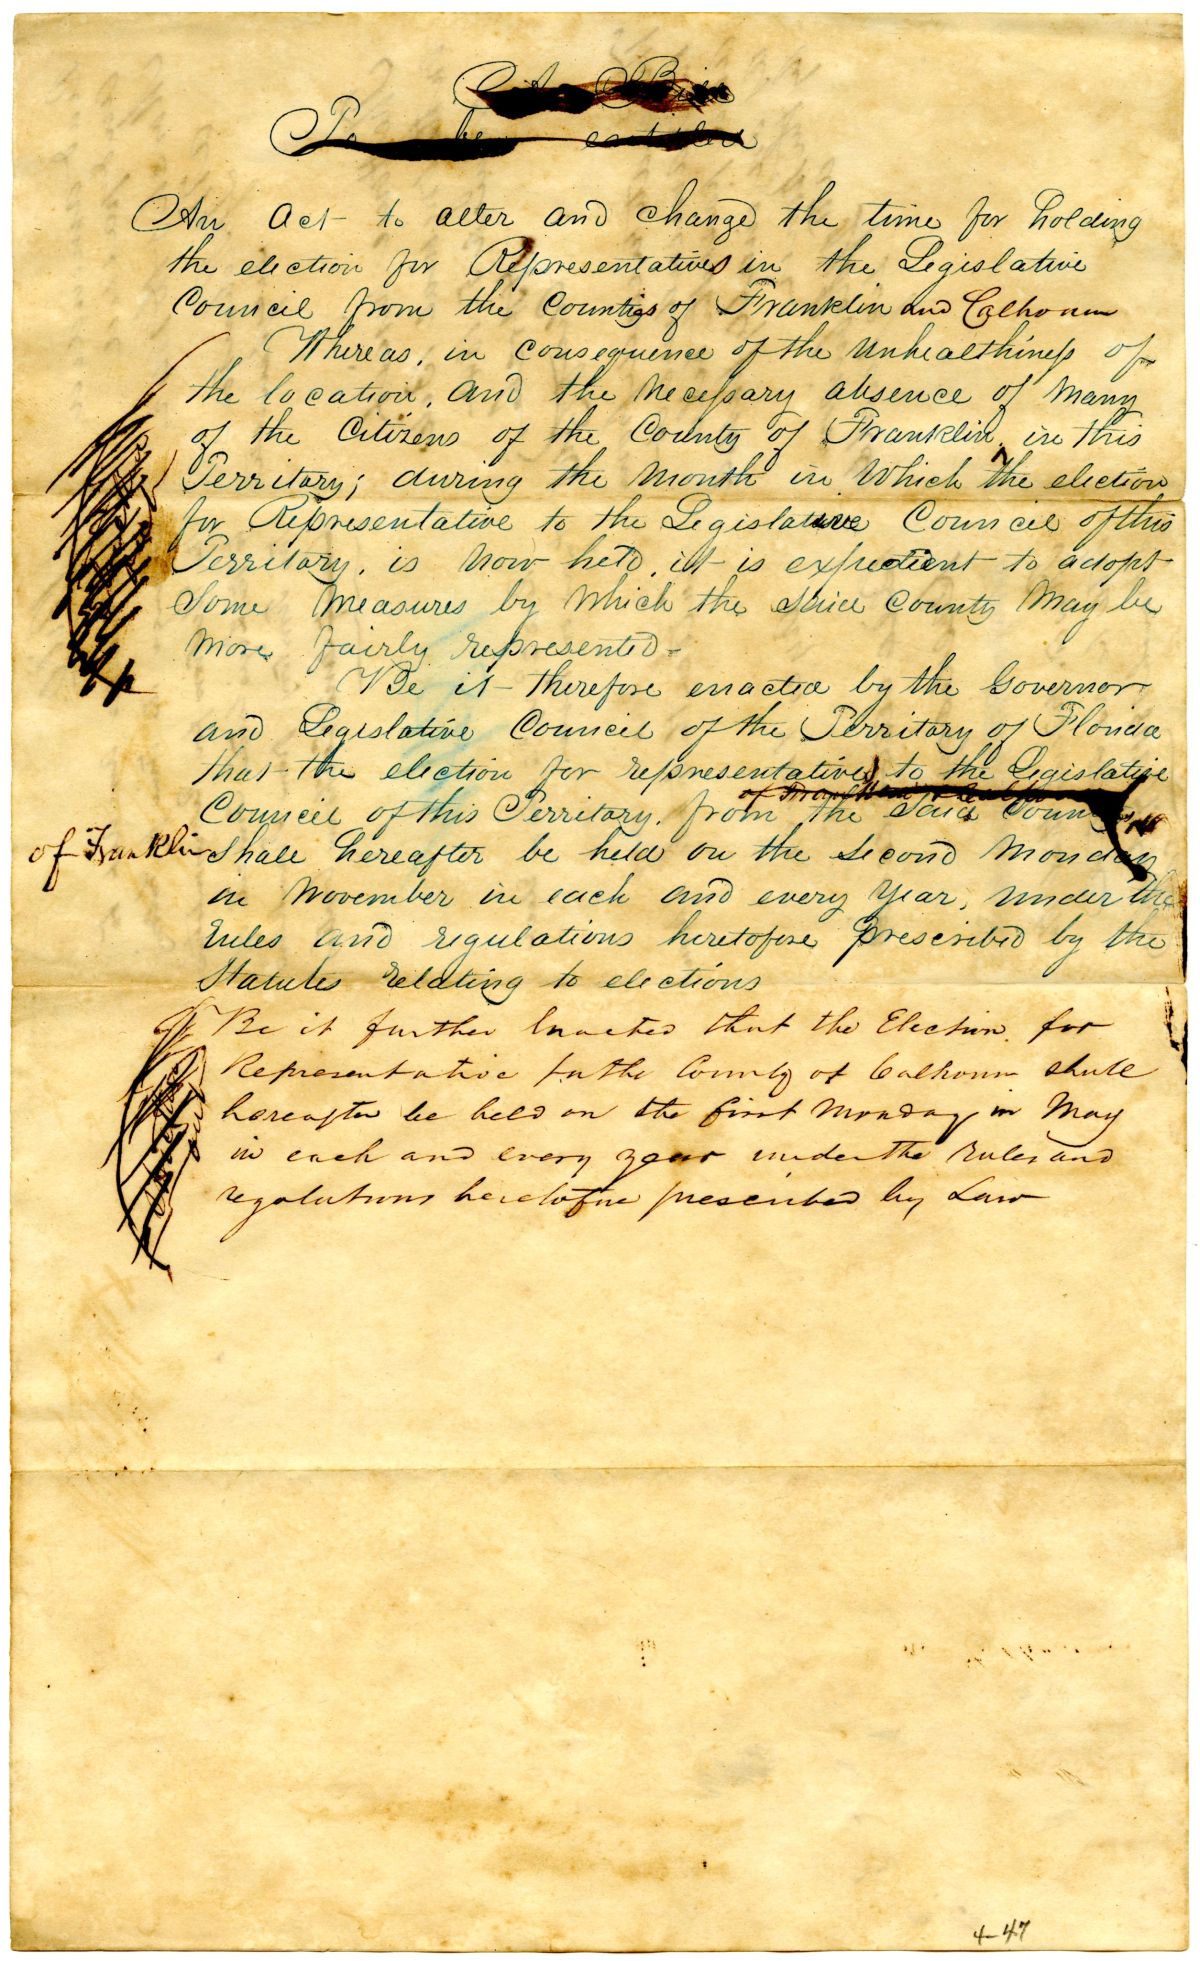 A Bill
To be entitled
An Act to alter and change the time for holding
the election for Representatives in the Legislative
Council from the Counties of Franklin and Calhoun
Whereas, in consequence of the unhealthiness of
the location, and the necessary absence of many
of the Citizens of the County of Franklin, in this
Territory; during the month in which the election
for Representative to the Legislative Council of this
Territory, is now held, it is expedient to adopt
some measures by which the said County may be
more fairly represented-
Be it therefore enacted by the Governor
and Legislative Council of the Territory of Florida
that the election for representatives to the Legislative
Council of this Territory, from the said County
of Franklin shall hereafter be held on the second Monday
in November in each and every Year, under the
rules and regulations heretofore prescribed by the
Statutes relating to elections
Be it further Enacted that the Election for
Representative for the County of Calhoun shall
hereafter be held on the first Monday in May
in each and every year under the rules and
regulations heretofore prescribed by Law
4-47